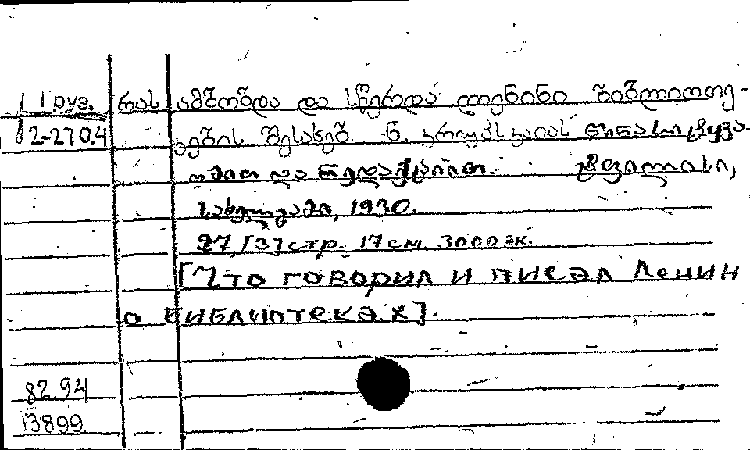 1 груз. რას ამბობდა და სწერდა ლენინი ბიბლიოთე-
2-2704 კების შესახებ ნ. კრუპსკაიას წინასიტყვა-
ობით და რედაქციით. ტფილისი,
სახელგამი, 1930.
27 [3] стр. 17 см. 3000 эк.
[Что говорил и писал Ленин
о библиотеках].
8294
13899